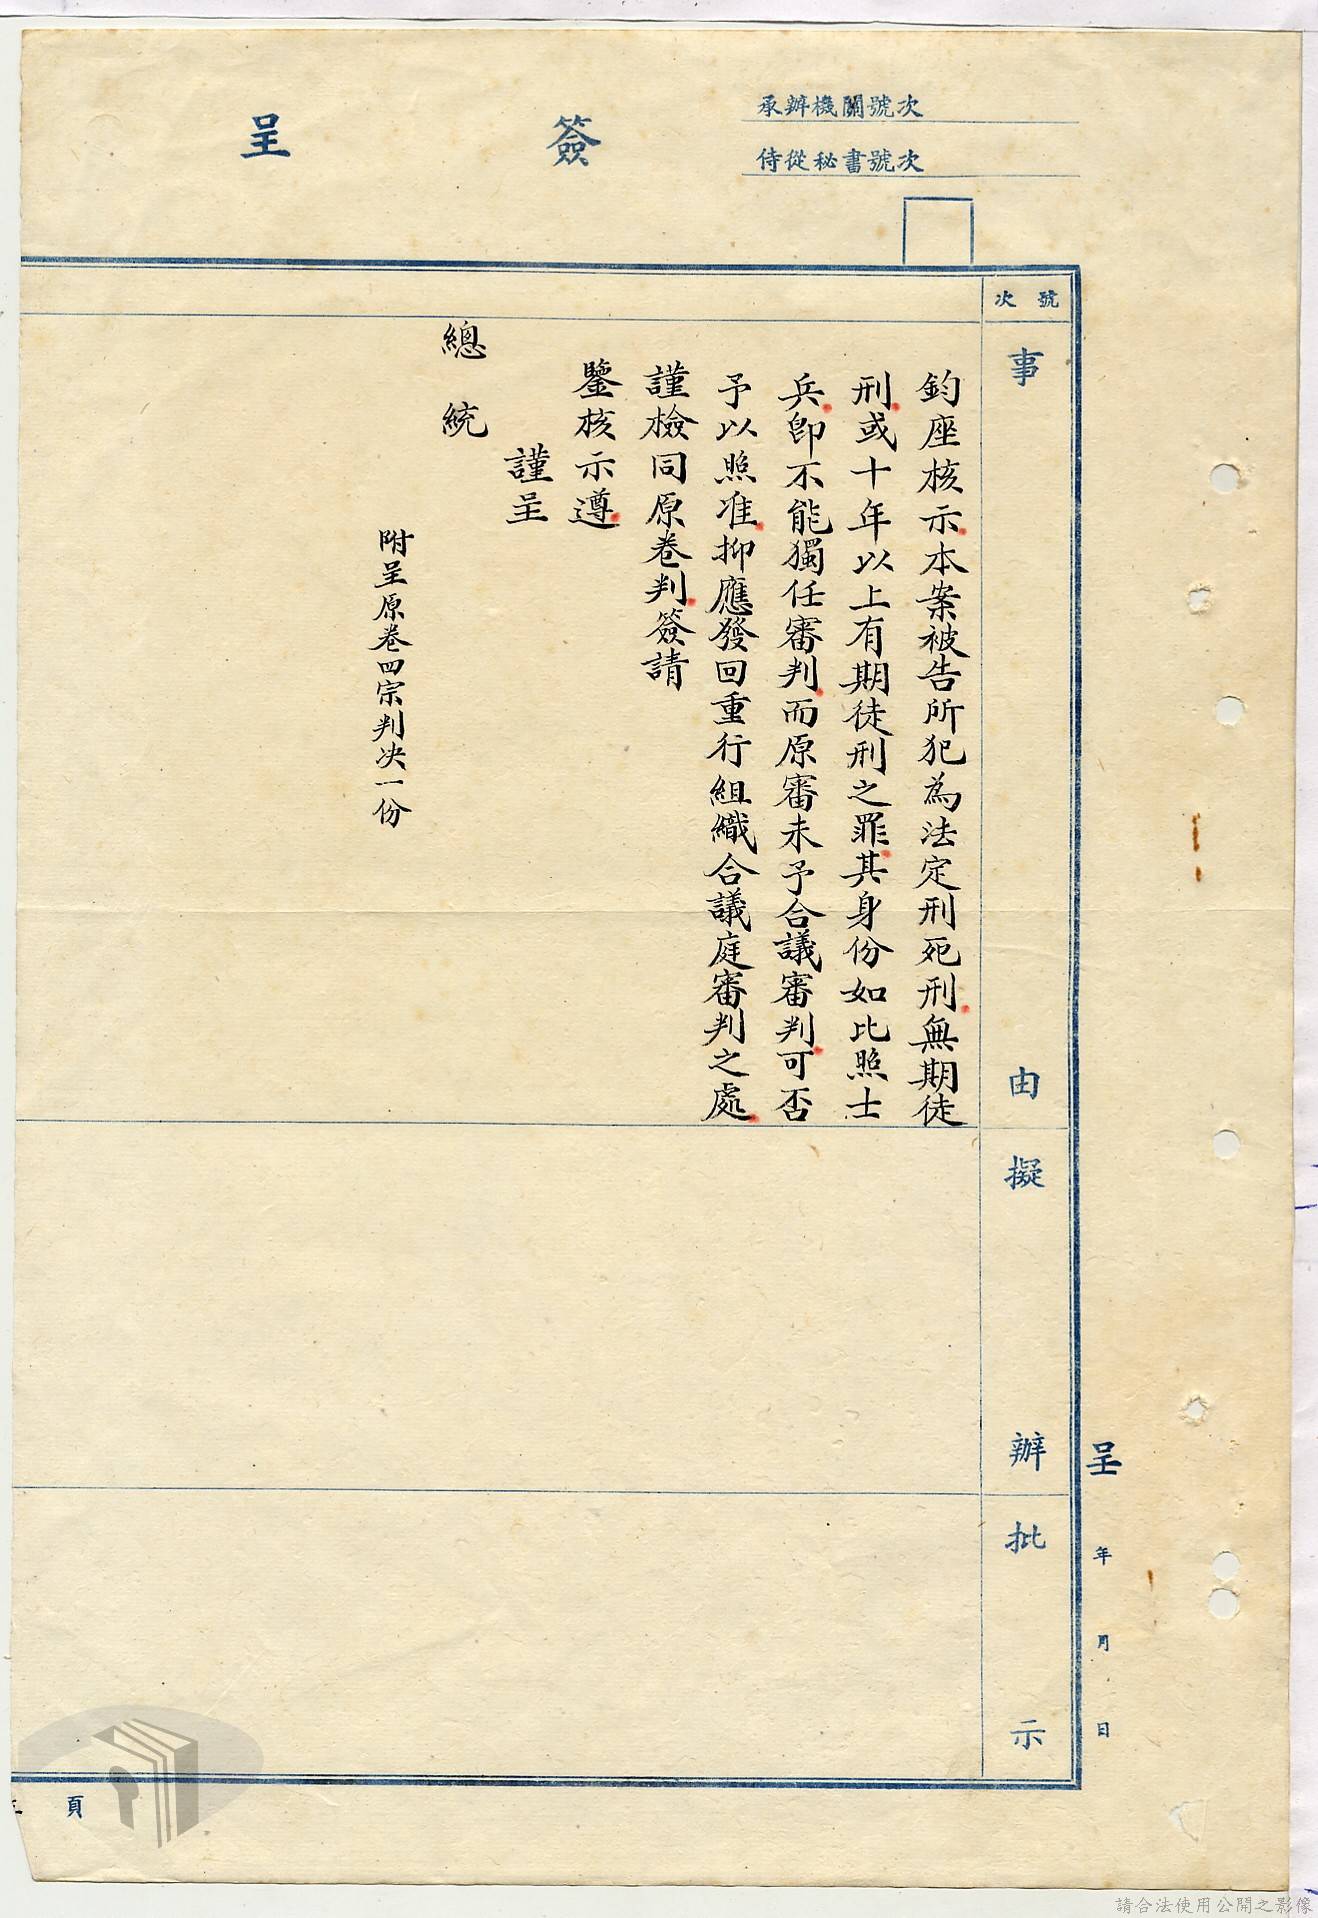 簽呈
承辦機關號次
侍從秘書號次
號次
事由
擬辦
批示
呈 年 月 日
鈞座核示本案被告所犯為法定刑死刑無期徒
刑或十年以上有期徒刑之罪其身份如比照士
兵卽不能獨任審判而原審未予合議審判可否
予以照准抑應發回重行組織合議庭審判之處
謹檢同原卷判簽請
鑒核示遵
謹呈
總統
附呈原卷四宗判决一份
頁
請合法使用公開之影像